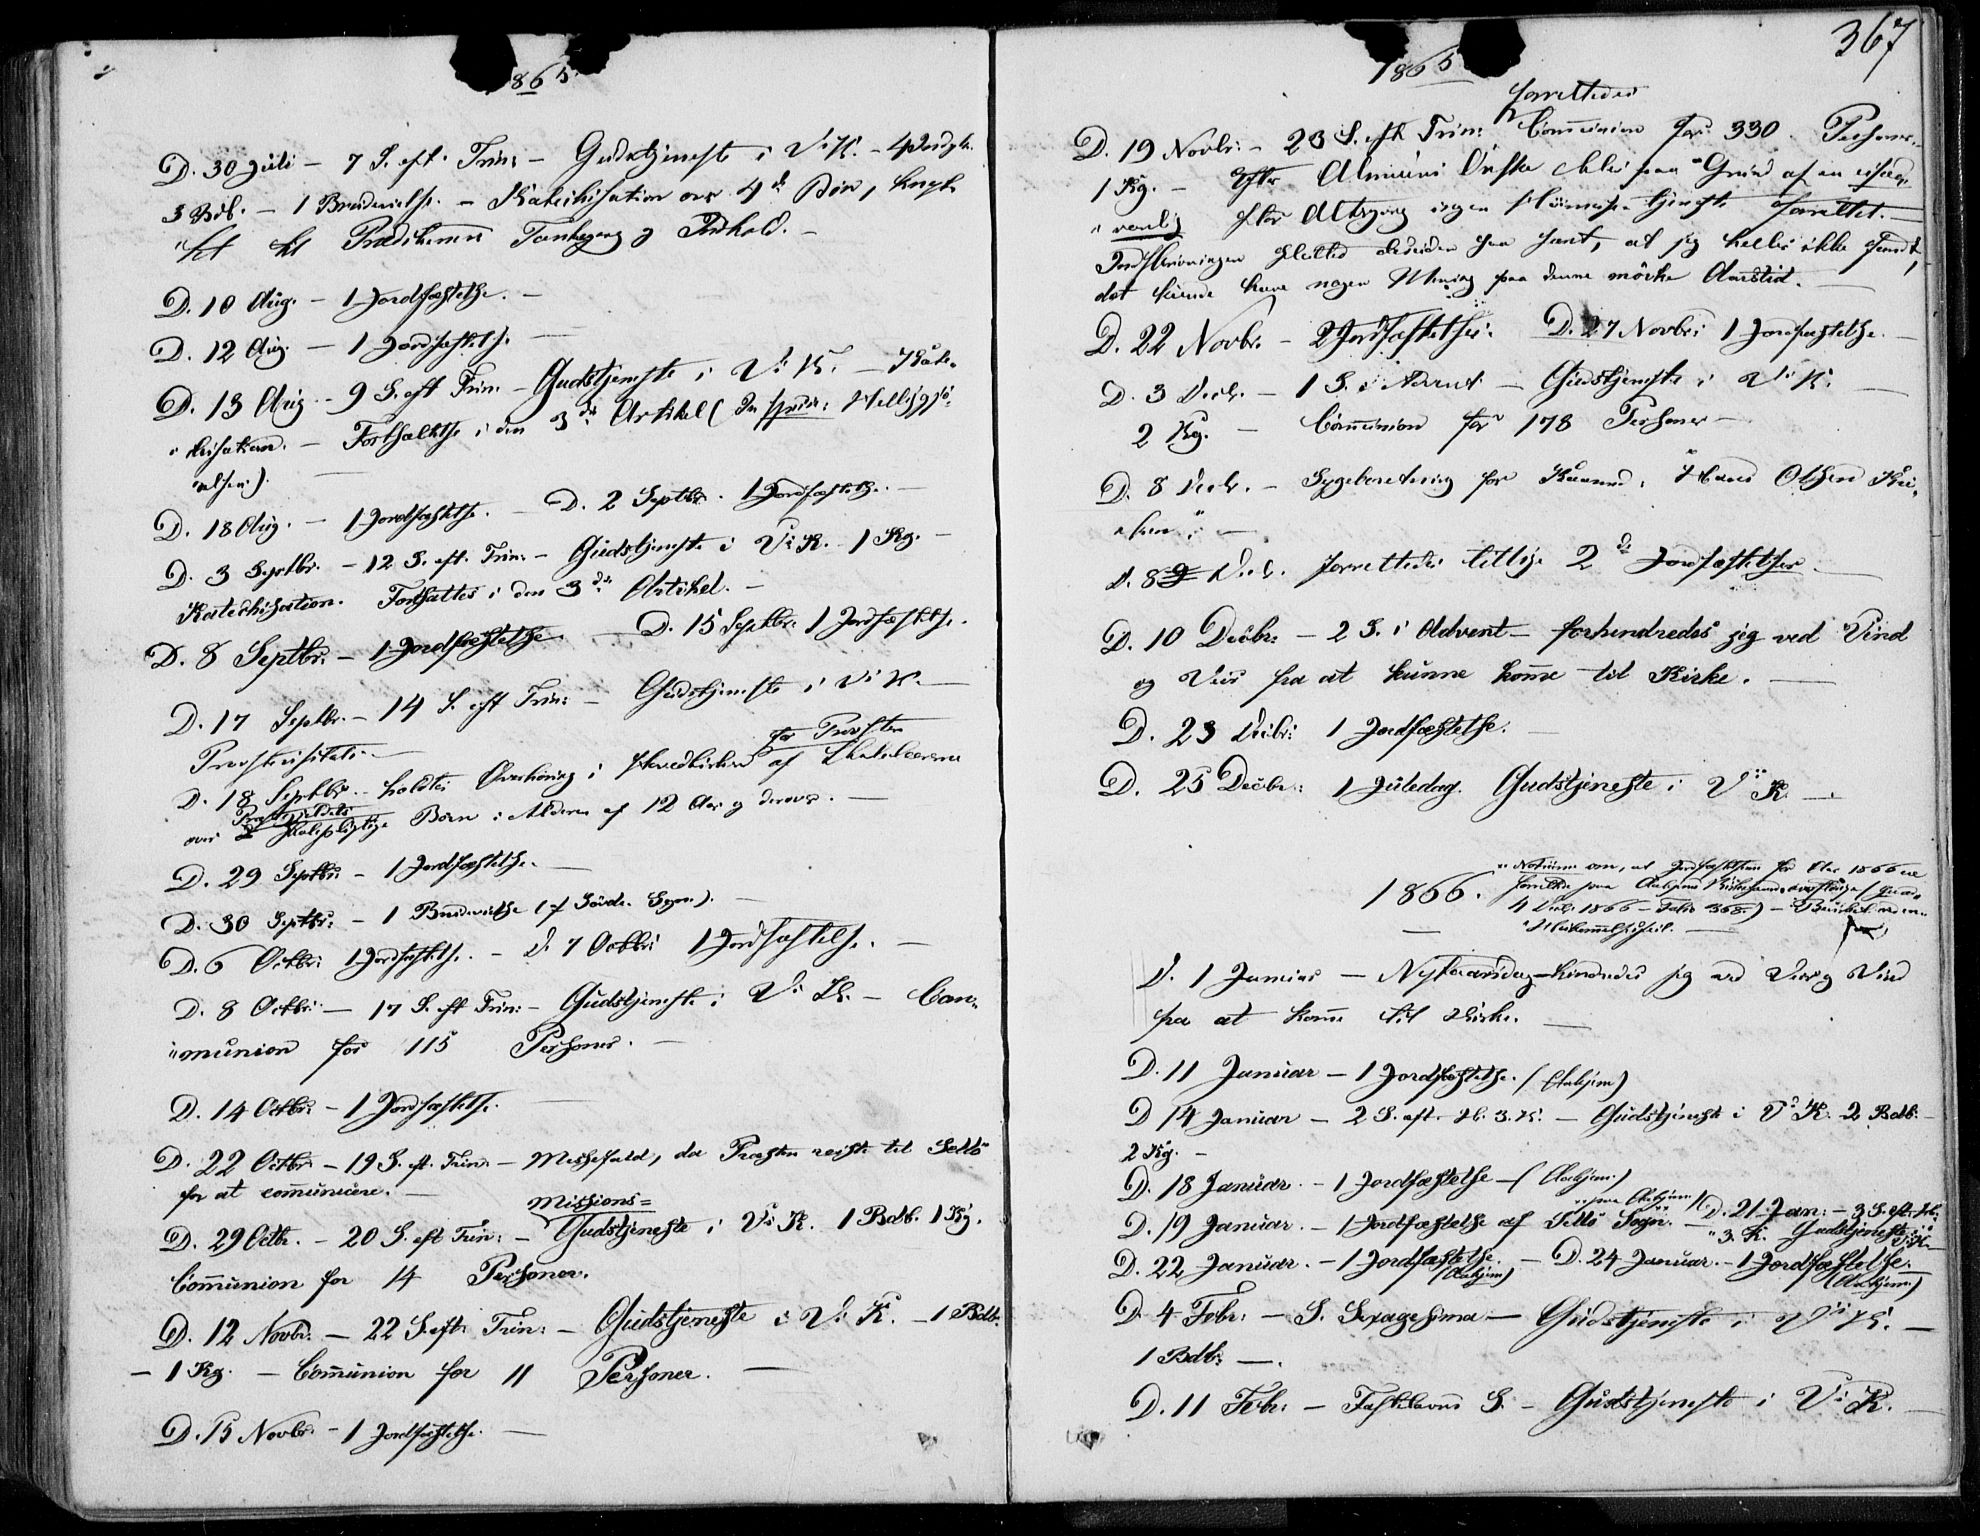 1865.
D. 30 Juli – 7 S. eft. Trin: – Gudstjeneste i V: K. –
3 Bdb. – 1 Brudevielse. – Katechisation over 4de Bön,
Prædikenens Tankegang og Indhold. –
D. 10 Aug. – 1 Jordfæstelse. –
D. 12 Aug. – 1 Jordfæstelse
D. 13 Aug. – 9 S. eft Trin: – Gudstjeneste i V: K. – Kate-
"chisation. – Fortsættelse i den 3die Artikel (
"elsen).
D. 18 Aug. – 1 Jordfæstelse. – D. 2 Septbr. 1 Jordfæstelse. –
D. 3 Septbr. – 12 S. eft. Trin: – Gudstjeneste i V: K. 1 Kg. –
Katechisation. Fortsattes i den 3die Artikel. –
D. 8 Septbr: – 1 Jordfæstelse. – D. 15 Septbr: 1 Jordfæstelse.
D. 17 Septbr. – 14 S. eft Trin: – Gudstjeneste i V: K. –
Provstevisitats. –
for Provsten
D. 18 Septbr. – holdtes Overhöring i Hovedkirken af Skolelærerne
Præstegjeldets
over skolepligtige Börn i Alderen af 12 Aar og derover. –
D. 29 Septbr: – 1 Jordfæstelse. –
D. 30 Septbr: – 1 Brudevielse (af Sövde Sogn). –
D. 6 Octbr: 1 Jordfæstelse. – D. 7 Octbr: 1 Jordfæstelse. –
D. 8 Octbr: – 17 S. eft Trin: – Gudstjeneste i V: K. – Com-
"munion for 115 Personer. –
D. 14 Octbr: – 1 Jordfæstelse.
D. 22 Octbr: – 19 S. eft. Trin: – Messefald, da Præsten reiste til Selö
for at communicere. –
Missions=
D. 29 Octbr. – 20 S. eft Trin: – Gudstjeneste i V: K. 1 Bdb. 1 Kg.
Communion for 14 Personer.
D. 12 Novbr: – 22 S. eft: Trin: – Gudstjeneste i V: K. – 1 Bdb.
– 1 Kg. – Communion for 11 Personer. –
D. 15 Novbr. – 1 Jordfæstelse. –
367
1865
forrettedes
D. 19 Novbr: – 23 S. eft Trin: Communion for 330 Personer. –
1 Kg. – Efter Almuens Önske blev paa Grund af en usæd-
"vanlig stor Altergang ingen tjeneste forrettet. –
Indskrivningen desuden saa sent, at jeg heller ikke fandt,
det kunde have nogen Mening paa denne mörke Aarstid. –
D. 22 Novbr. – 2 Jordfæstelser. D. 27 Novbr: 1 Jordfæstelse. –
D. 3 Decbr. – 1 S. i Advent – Gudstjeneste i V: K. –
2 Kg. – Communion for 178 Personer –
D. 8 Decbr. – Sygeberetning for Hans Olsen
D. 8 Decbr. forrettedes tillige 2de Jordfæstelser
D. 10 Decbr: – 2 S. i Advent – forhindredes jeg ved Vind
og Veir fra at kunne komme til Kirke. –
D. 23 Decbr: 1 Jordfæstelse.
D. 25 Decbr: 1 Juledag. Gudstjeneste i V: K. –
1866.
Notereres om, at Jordfæstelsen for Aar 1866 er
forrettet paa Aahjem
4 Decbr. 1866 – Folio 368.) –
D. 1 Januar – Nytaarsdag – hindredes jeg ved Veir og Vind
fra at komme til Kirke. –
D. 11 Januar – 1 Jordfæstelse. (Aahjem)
D 14 Januar – 2 S. eft. H. 3. K. – Gudstjeneste i V: K. 2 Bdb: –
2 Kg. –
D. 18 Januar. – 1 Jordfæstelse – (Aahjem)
paa Aahjem
D. 19 Januar. – 1 Jordfæstelse af Selö Sogn. – D. 21 Jan: – 3 S. eft. H.
"3. K. Gudstjeneste i V: K. –
D. 22 Januar. – 1 Jordfæstelse. – D. 24 Januar. – 1 Jordfæstelse.
(Aahjem) (Aahjem.)
D. 4 Febr: – S. Sexagesima – Gudstjeneste i V: K. –
1 Bdb: –.
D. 11 Febr: – Fastelavns S. – Gudstjeneste i V: K. –